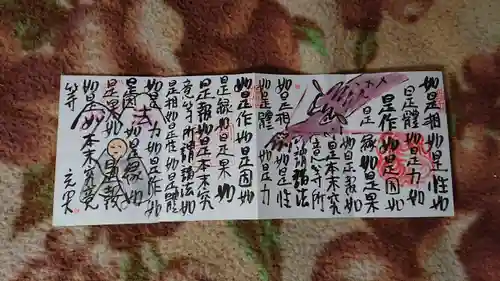 如是相如是性如
是體如是力如
是作如是因如
是縁如是果
如是報如
是本末究
竟等所
謂諸法
如是相如是性
如是體如是力
如是作如是因如
是縁如是果如
是報如是本末究
竟等所謂諸法如
是相如是性如是體
如是力如是作如
是因如是縁如
是果如是報
如是本末究竟
等